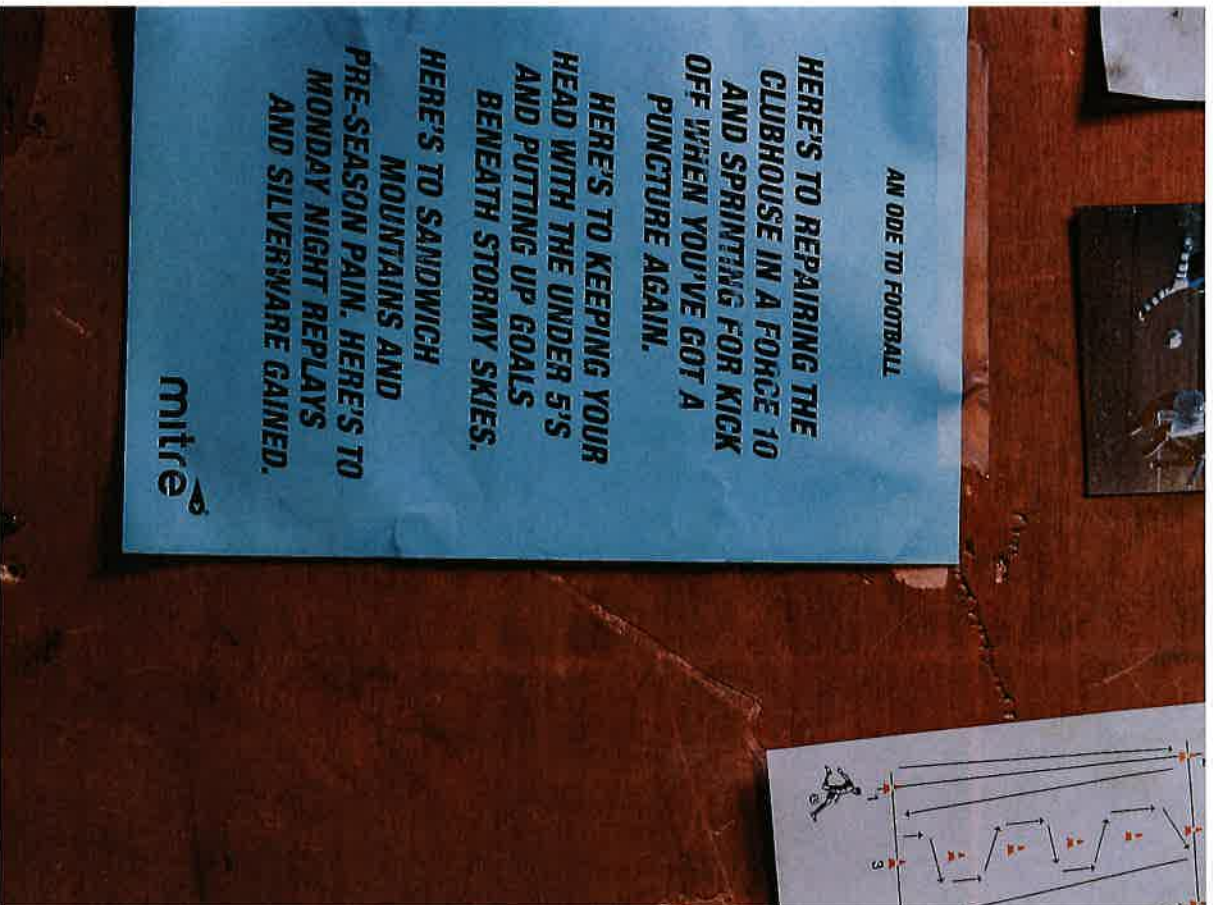 AN ODE TO FOOTBALL
HERE'S TO REPAIRING THE
CLUBHOUSE IN A FORCE 10
AND SPRINTING FOR KICK
OFF WHEN YOU'VE GOT A
PUNCTURE AGAIN.
HERE'S TO KEEPING YOUR
HEAD WITH THE UNDER 5'S
AND PUTTING UP GOALS
BENEATH STORMY SKIES.
HERE'S TO SANDWICH
MOUNTAINS AND
PRE-SEASON PAIN. HERE'S TO
MONDAY NIGHT REPLAYS
AND SILVERWARE GAINED.
mitre
1
3